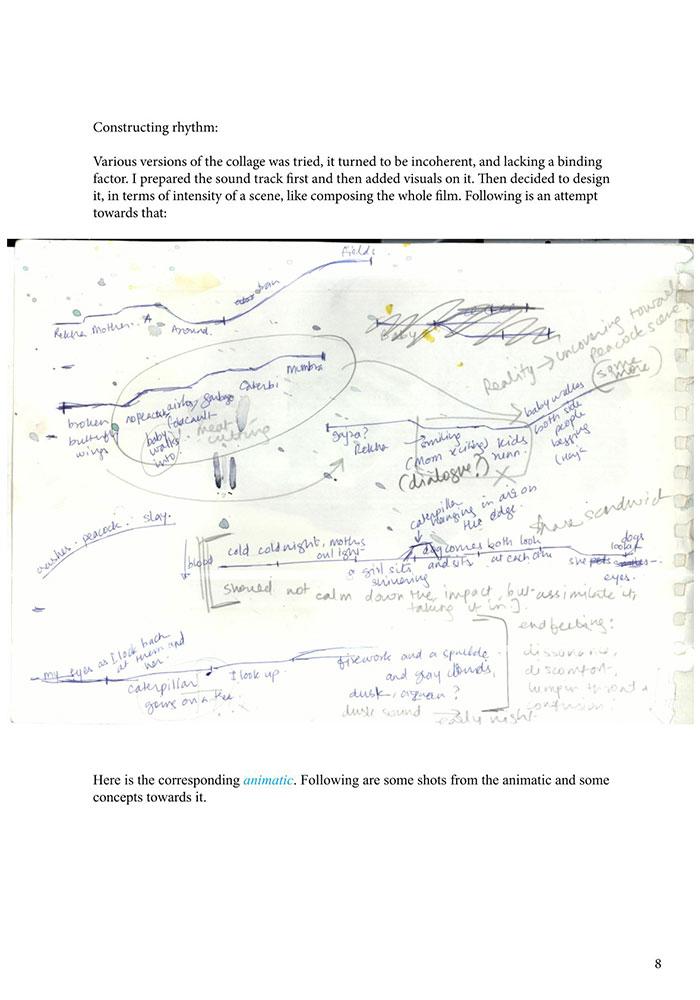 Constructing rhythm:
Various versions of the collage was tried, it turned to be incoherent, and lacking a binding
factor. I prepared the sound track first and then added visuals on it. Then decided to design
it, in terms of intensity of a scene, like composing the whole film. Following is an attempt
towards that:
Fields
Rekha Mother
Around
Reality → uncovering towards
peacock scene
some
more
Mumbra
garbage
broken
butterfly
wings
baby
walks
into
meat
cutting
Gupa?
Rekha
smiling
(Mom x citing)
(dialogue?)
kids
nunn.
baby walks
both side
people
begging
caterpillar
hanging in air on
the edge.
share sandwich
peacock. slay.
blood
cold cold night, moths
on light
a girl sits
shivering
dog comes
and sits.
both look
at each other
dogs
look at
she
eyes.
should not calm down the impact, but assimilate it,
taking it in].
end feeling:
dissonance,
discomfort,
lump in throat +
confusion
my eyes as I look back
at them and
her.
caterpillar
going on a tree
I look up.
firework and a sparkle
and gray clouds,
dusk,
dusk sound → early night.
Here is the corresponding animatic. Following are some shots from the animatic and some
concepts towards it.
8